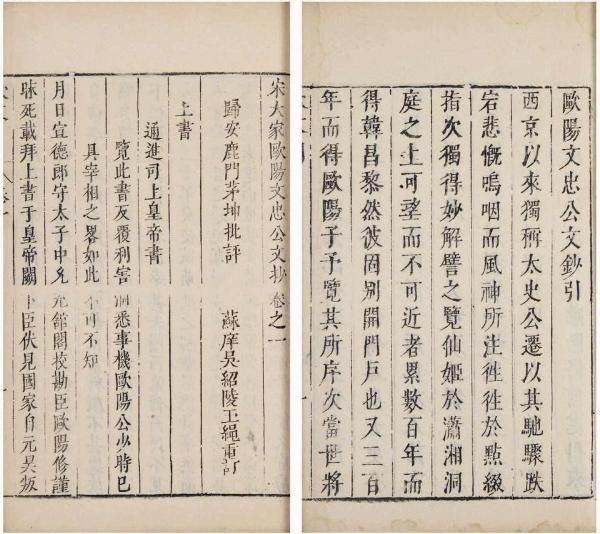 歐陽文忠公文鈔引
西京以來獨稱太史公遷以其馳驟跌
宕悲慨嗚咽而風神所注徃徃於點綴
指次獨得妙解譬之覽仙姬於瀟湘洞
庭之上可望而不可近者累數百年而
得韓昌黎然彼固別開門戶也又三百
年而得歐陽子予覽其所序次當世將
宋大家歐陽文忠公文抄卷之一
歸安鹿門茅坤批評
蘇庠吳紹陵玉繩重訂
上書
通進司上皇帝書
覽此書反覆利害洞悉事機歐陽公少時已
具宰相之畧如此不可不知
月日宣德郎守太子中允充館閣校勘臣歐陽修謹
昧死載拜上書于皇帝闕下臣伏見國家自元昊叛